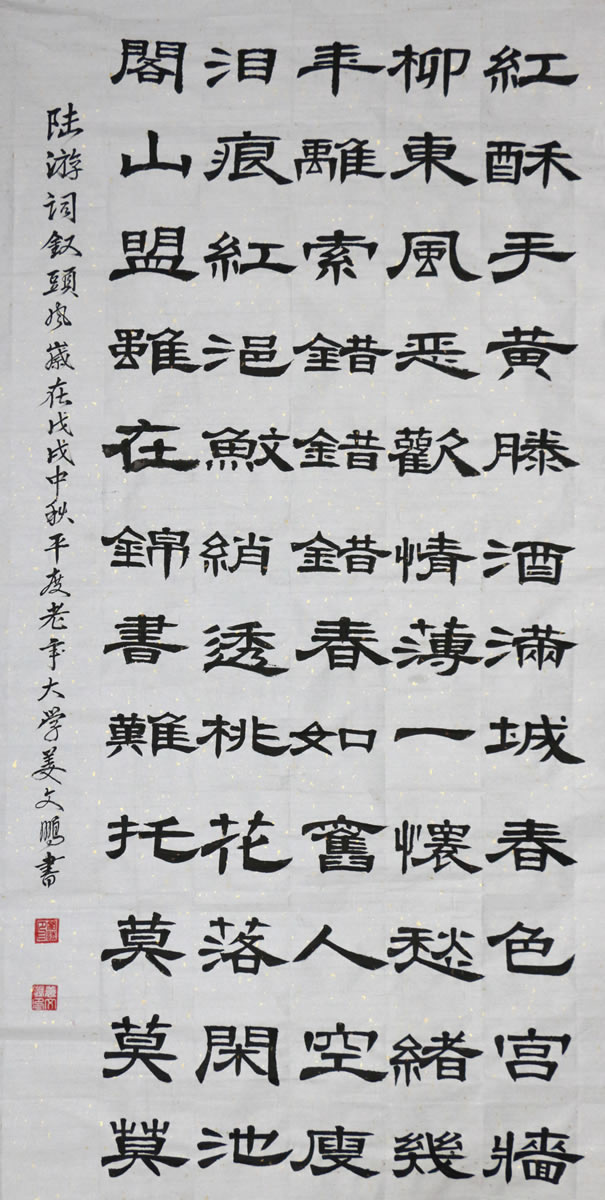 紅酥手黄滕酒滿城春色宫牆
柳東風恶歡情薄一懷愁緒幾
年離索錯錯錯春如舊人空瘦
泪痕紅浥鮫綃透桃花落閑池
閣山盟雖在錦書難托莫莫莫
陆游词釵頭凤歲在戊戌中秋平度老年大学姜文鵬書